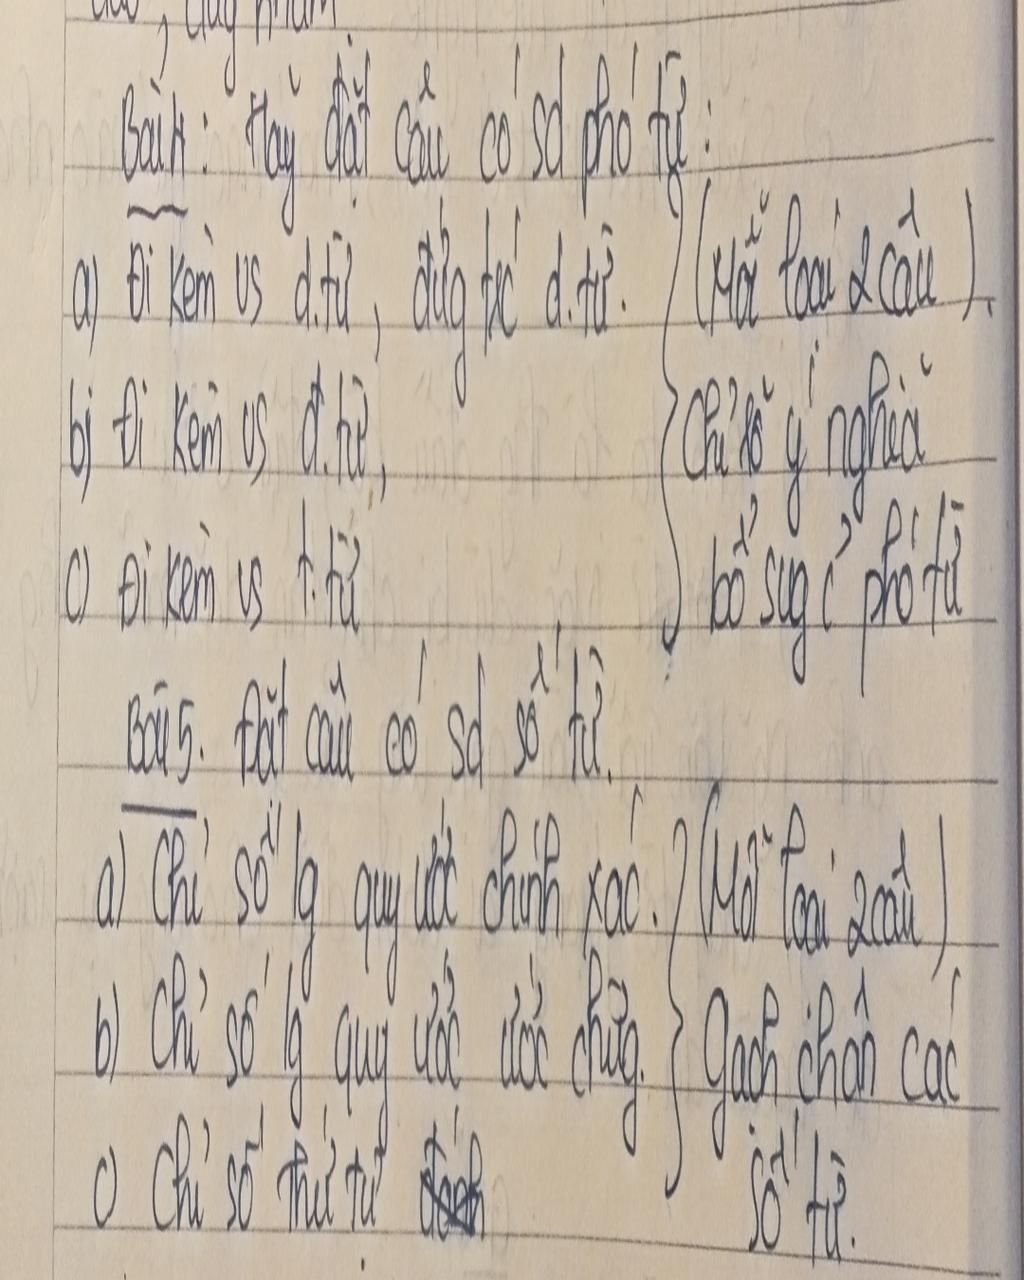 Bài 4: Hãy đặt câu có sd phó từ:
a) Đi kèm vs d.từ, đứg trc d.từ. (Mỗi loại 2 câu).
b) Đi kèm vs đ.từ, chỉ rõ ý nghĩa
c) Đi kèm vs t.từ bổ sug củ phó từ
Bài 5. Đặt câu có sd số từ.
a) Chỉ số lg quy ước chính xác. (Mỗi loại 2 câu)
b) Chỉ số lg quy ước ước chừg. Gạch chân các
c) Chỉ số thứ tự số từ.